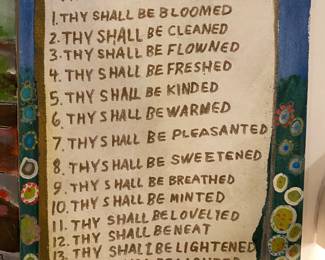 1. THY SHALL BE BLOOMED
2. THY SHALL BE CLEANED
3. THY SHALL BE FLOWNED
4. THY SHALL BE FRESHED
5. THY SHALL BE KINDED
6. THY SHALL BE WARMED
7. THY SHALL BE PLEASANTED
8. THY SHALL BE SWEETENED
9. THY SHALL BE BREATHED
10. THY SHALL BE MINTED
11. THY SHALL BE LOVELIED
12. THY SHALL BE NEAT
13. THY SHALL BE LIGHTENED